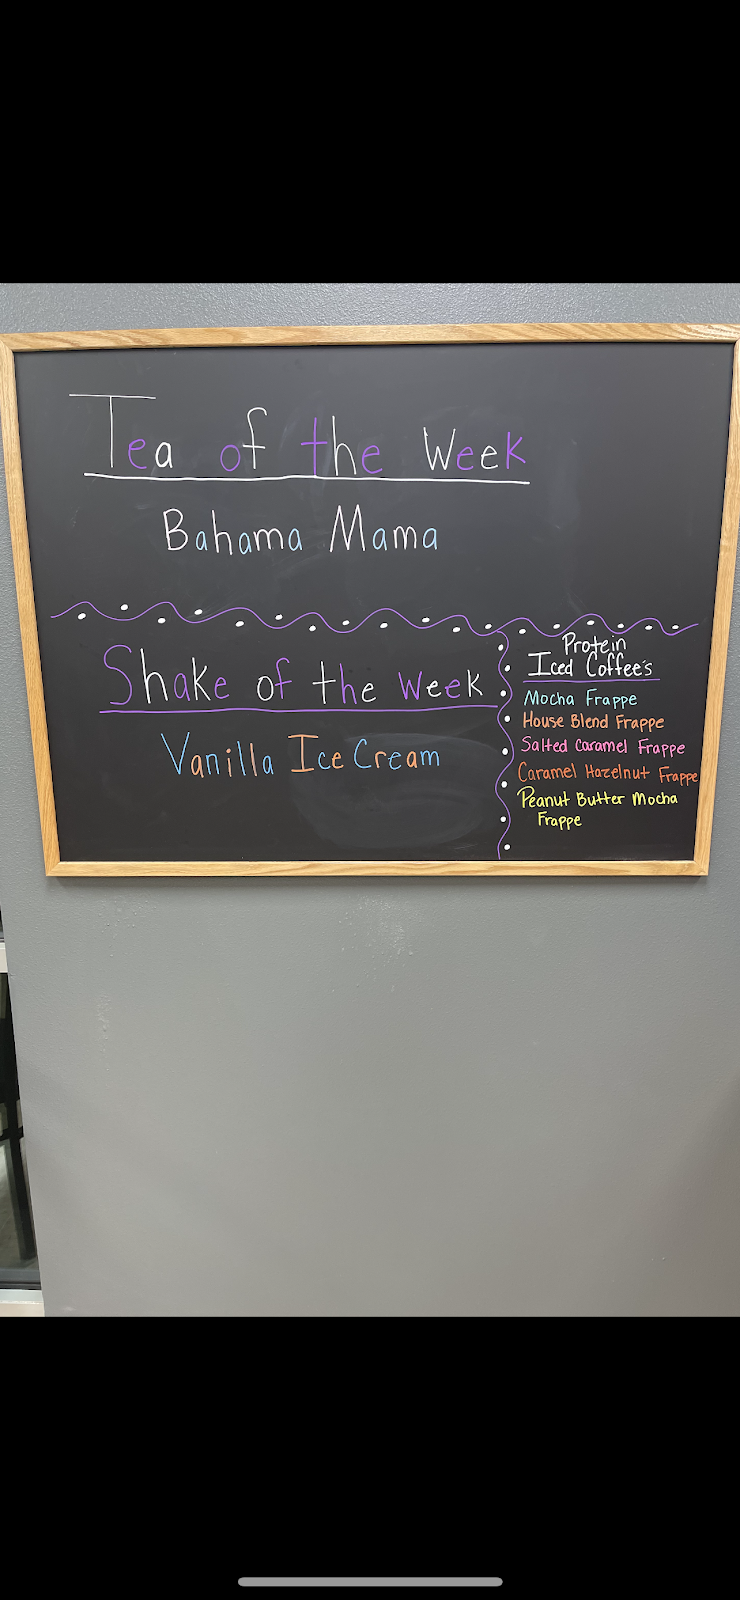 Tea of the Week
Bahama Mama
Shake of the Week
Vanilla Ice Cream
Protein
Iced Coffee's
Mocha Frappe
House Blend Frappe
Salted Caramel Frappe
Caramel Hazelnut Frappe
Peanut Butter Mocha
Frappe